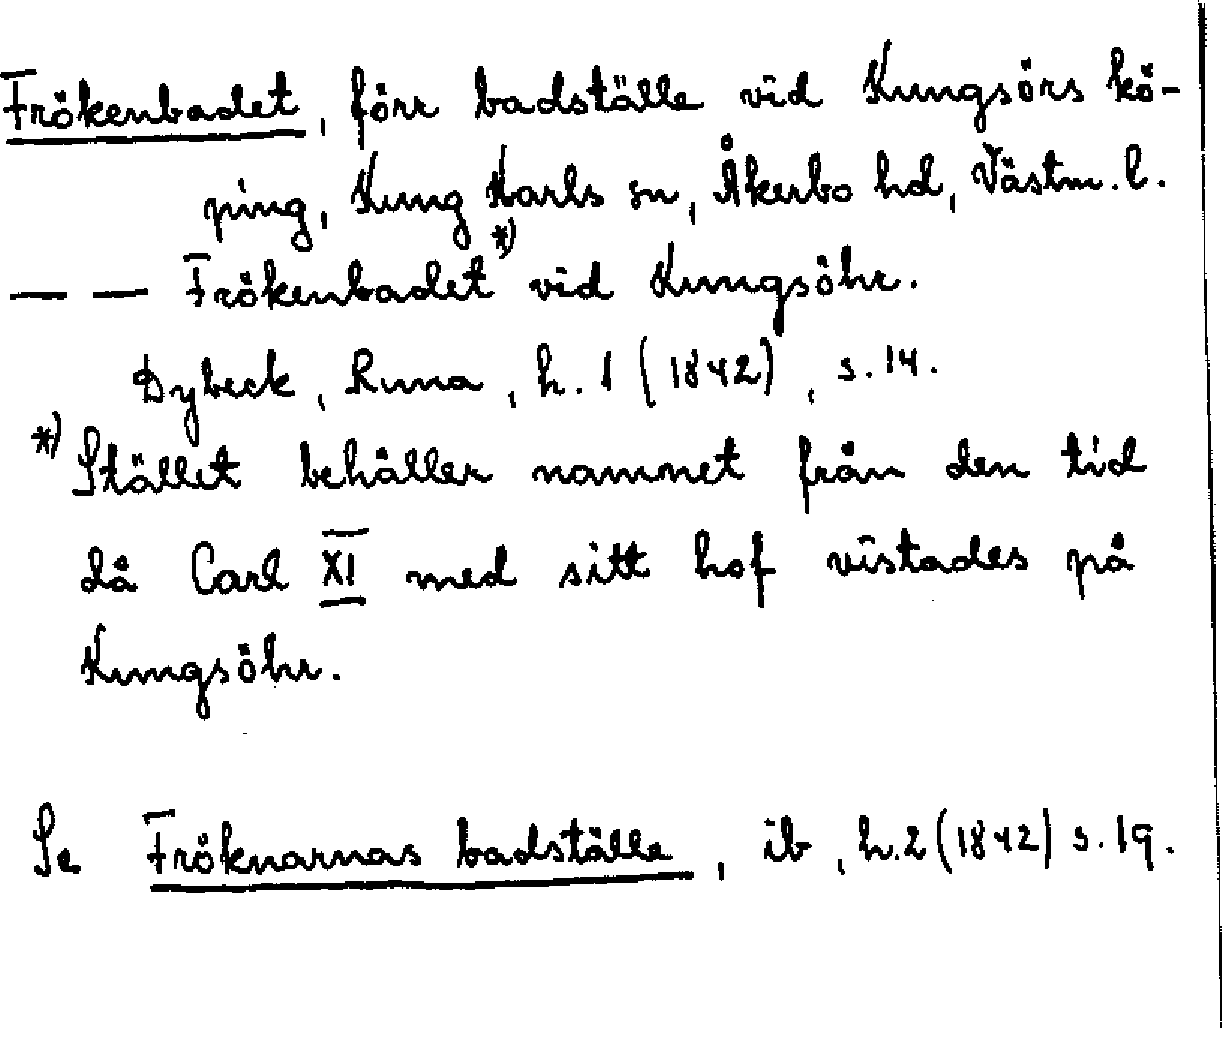 Frökenbadet, förr badställe vid Kungsörs kö-
ping, Kung Karls sn, Åkerbo hd, Västm. l.
— — Frökenbadet *) vid Kungsöhr.
Dybeck, Runa, h. 1 (1842), s. 14.
*) Stället behåller namnet från den tid
då Carl XI med sitt hof vistades på
Kungsöhr.
Se Fröknarnas badställe, ib, h. 2 (1842) s. 19.